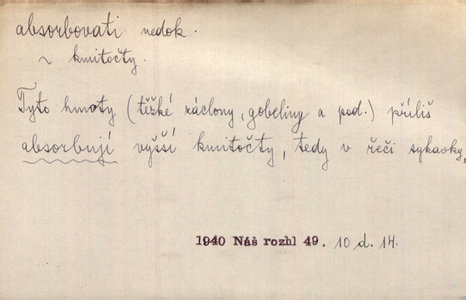 absorbovati nedok.
~ kmitočty.
Tyto hmoty (těžké záclony, gobeliny a pod.) příliš
absorbují vyšší kmitočty, tedy v řeči sykavky,
1940 Náš rozhl 49. 10 d. 14.